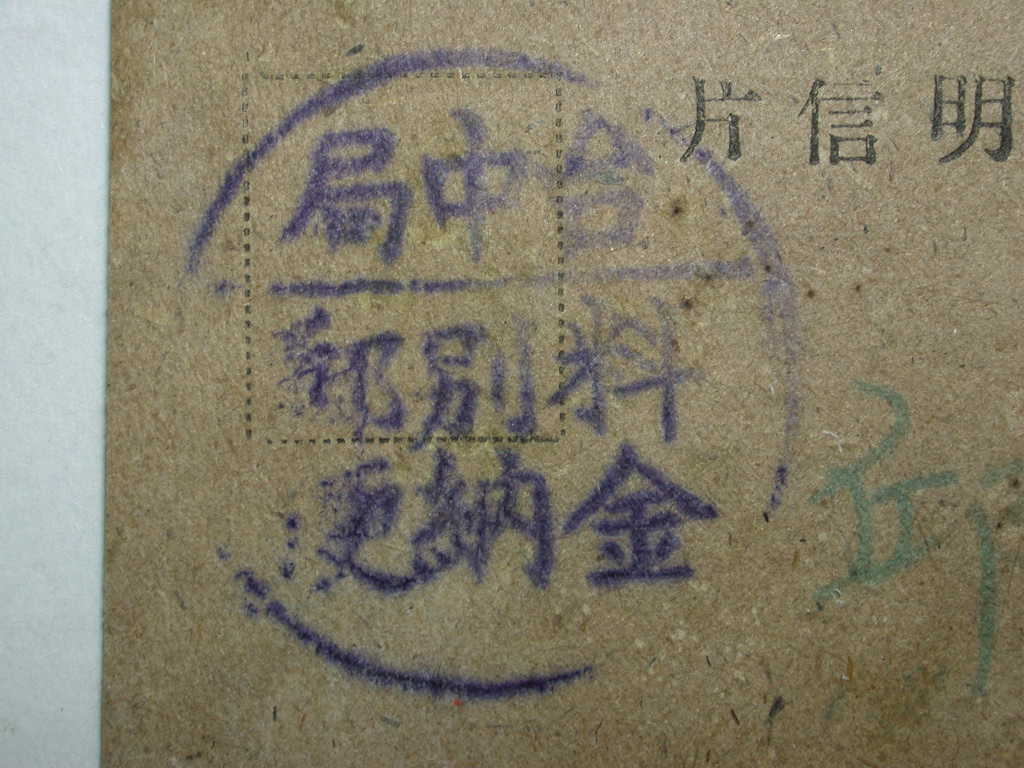 明信片
台中局
料金
別納
郵便